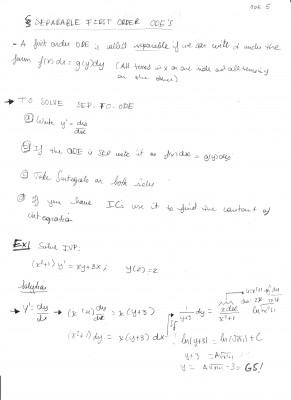 ODE 5
§ SEPARABLE FIRST ORDER ODE'S
- A first order ODE is called separable if we can write it under the
form f(x)dx = g(y)dy (All terms in x on one side and all terms in y
on the other)
→ TO SOLVE SEP. FO. ODE
① Write y' = dy/dx
② If the ODE is SEP write it as f(x)dx = g(y)dy
③ Take Integrals on both sides
④ If you have ICs use it to find the constant of
integration
EX1 Solve IVP:
(x²+1) y' = xy+3x ; y(2)=2
Solution
→ y' = dy/dx → (x²+1) dy/dx = x(y+3)
(x²+1) dy = x(y+3) dx
1/(y+3) dy = x dx/(x²+1)
ln|y+3| = ln(√x²+1) + C
y+3 = A√x²+1
y = A√x²+1 -3 = GS!